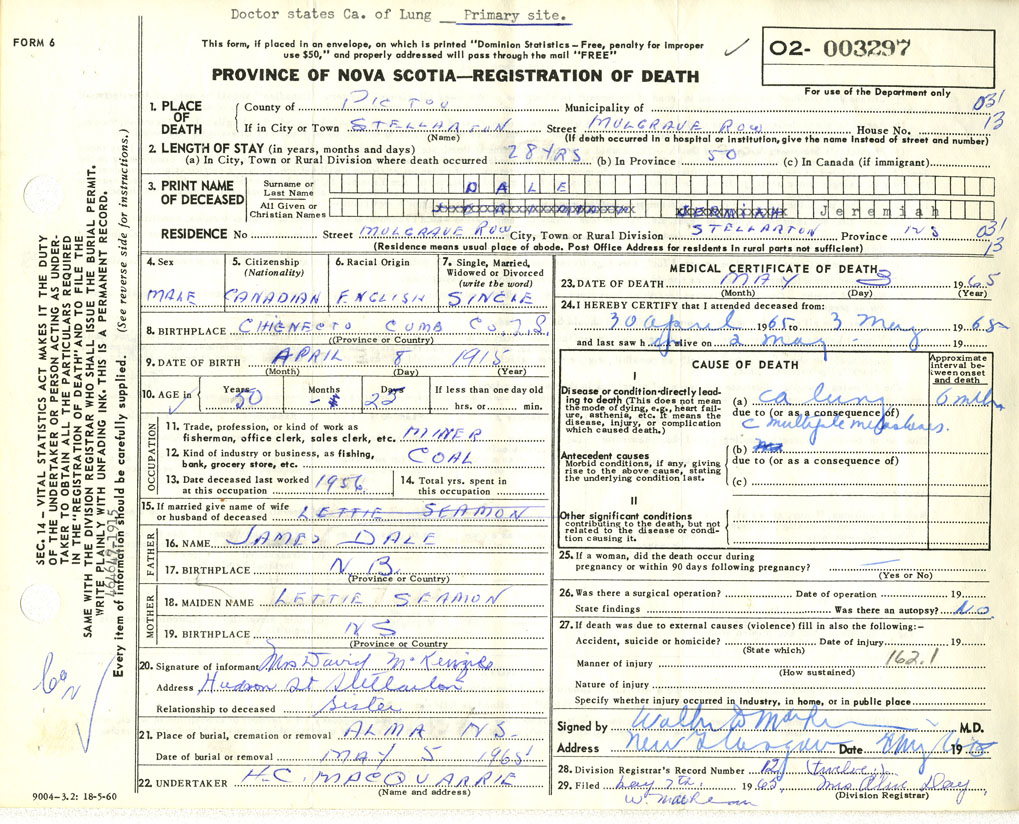 Doctor states Ca. of Lung __ Primary site.
FORM 6
This form, if placed in an envelope, on which is printed "Dominion Statistics – Free, penalty for improper
use $50," and properly addressed will pass through the mail "FREE"
O2- 003297
PROVINCE OF NOVA SCOTIA—REGISTRATION OF DEATH
For use of the Department only
1. PLACE OF DEATH
County of PICTOU Municipality of 03'
If in City or Town STELLARTON Street MULGRAVE ROW House No. 13
(Name) (If death occurred in a hospital or institution, give the name instead of street and number)
2. LENGTH OF STAY (in years, months and days)
(a) In City, Town or Rural Division where death occurred 28 YRS (b) In Province 50 (c) In Canada (if immigrant)
3. PRINT NAME OF DECEASED
Surname or Last Name DALE
All Given or Christian Names Jeremiah
RESIDENCE No Street MULGRAVE ROW City, Town or Rural Division STELLARTON Province NS 03' 13
(Residence means usual place of abode. Post Office Address for residents in rural parts not sufficient)
4. Sex
MALE
5. Citizenship (Nationality)
CANADIAN
6. Racial Origin
ENGLISH
7. Single, Married, Widowed or Divorced (write the word)
SINGLE
8. BIRTHPLACE CHIGNECTO CUMB Co.
(Province or Country)
9. DATE OF BIRTH APRIL 8 1915
(Month) (Day) (Year)
10. AGE in Years 50 Months - Days 25 If less than one day old
hrs. or min.
OCCUPATION
11. Trade, profession, or kind of work as
fisherman, office clerk, sales clerk, etc. MINER
12. Kind of industry or business, as fishing,
bank, grocery store, etc. COAL
13. Date deceased last worked at this occupation 1956
14. Total yrs. spent in this occupation
15. If married give name of wife
or husband of deceased LETTIE SEAMON
FATHER
16. NAME JAMES DALE
17. BIRTHPLACE N B.
(Province or Country)
MOTHER
18. MAIDEN NAME LETTIE SEAMON
19. BIRTHPLACE NS
(Province or Country)
20. Signature of informant Mrs David McKenzie
Address Hudson St Stellarton
Relationship to deceased Sister
21. Place of burial, cremation or removal ALMA NS.
Date of burial or removal MAY 5 1965
22. UNDERTAKER H.C. MACQUARRIE
(Name and address)
MEDICAL CERTIFICATE OF DEATH
23. DATE OF DEATH MAY 3 1965
(Month) (Day) (Year)
24. I HEREBY CERTIFY that I attended deceased from:
30 april 1965 to 3 May 1965
and last saw h alive on 2 may 19
CAUSE OF DEATH
Approximate interval between onset and death
I
Disease or condition directly leading to death (This does not mean the mode of dying, e.g., heart failure, asthenia, etc. It means the disease, injury, or complication which caused death.)
(a) ca lung 6 mths
due to (or as a consequence of)
c multiple metastases.
(b)
Antecedent causes
Morbid conditions, if any, giving rise to the above cause, stating the underlying condition last.
due to (or as a consequence of)
(c)
II
Other significant conditions
contributing to the death, but not related to the disease or condition causing it.
25. If a woman, did the death occur during
pregnancy or within 90 days following pregnancy? —
(Yes or No)
26. Was there a surgical operation? Date of operation 19
State findings Was there an autopsy? No
27. If death was due to external causes (violence) fill in also the following:-
Accident, suicide or homicide? Date of injury 19
(State which) 162.1
Manner of injury
(How sustained)
Nature of injury
Specify whether injury occurred in industry, in home, or in public place
Signed by M.D.
Address New Glasgow Date May 19
28. Division Registrar's Record Number 12 (twelve)
29. Filed May 7th. 1965 Mrs Alice Day
(Division Registrar)
SEC. 14 – VITAL STATISTICS ACT MAKES IT THE DUTY
OF THE UNDERTAKER OR PERSON ACTING AS UNDER-
TAKER TO OBTAIN ALL THE PARTICULARS REQUIRED
IN THE "REGISTRATION OF DEATH" AND TO FILE THE
SAME WITH THE DIVISION REGISTRAR WHO SHALL ISSUE THE BURIAL PERMIT.
WRITE PLAINLY WITH UNFADING INK. THIS IS A PERMANENT RECORD.
Every item of information should be carefully supplied. (See reverse side for instructions.)
9004-3.2: 18-5-60